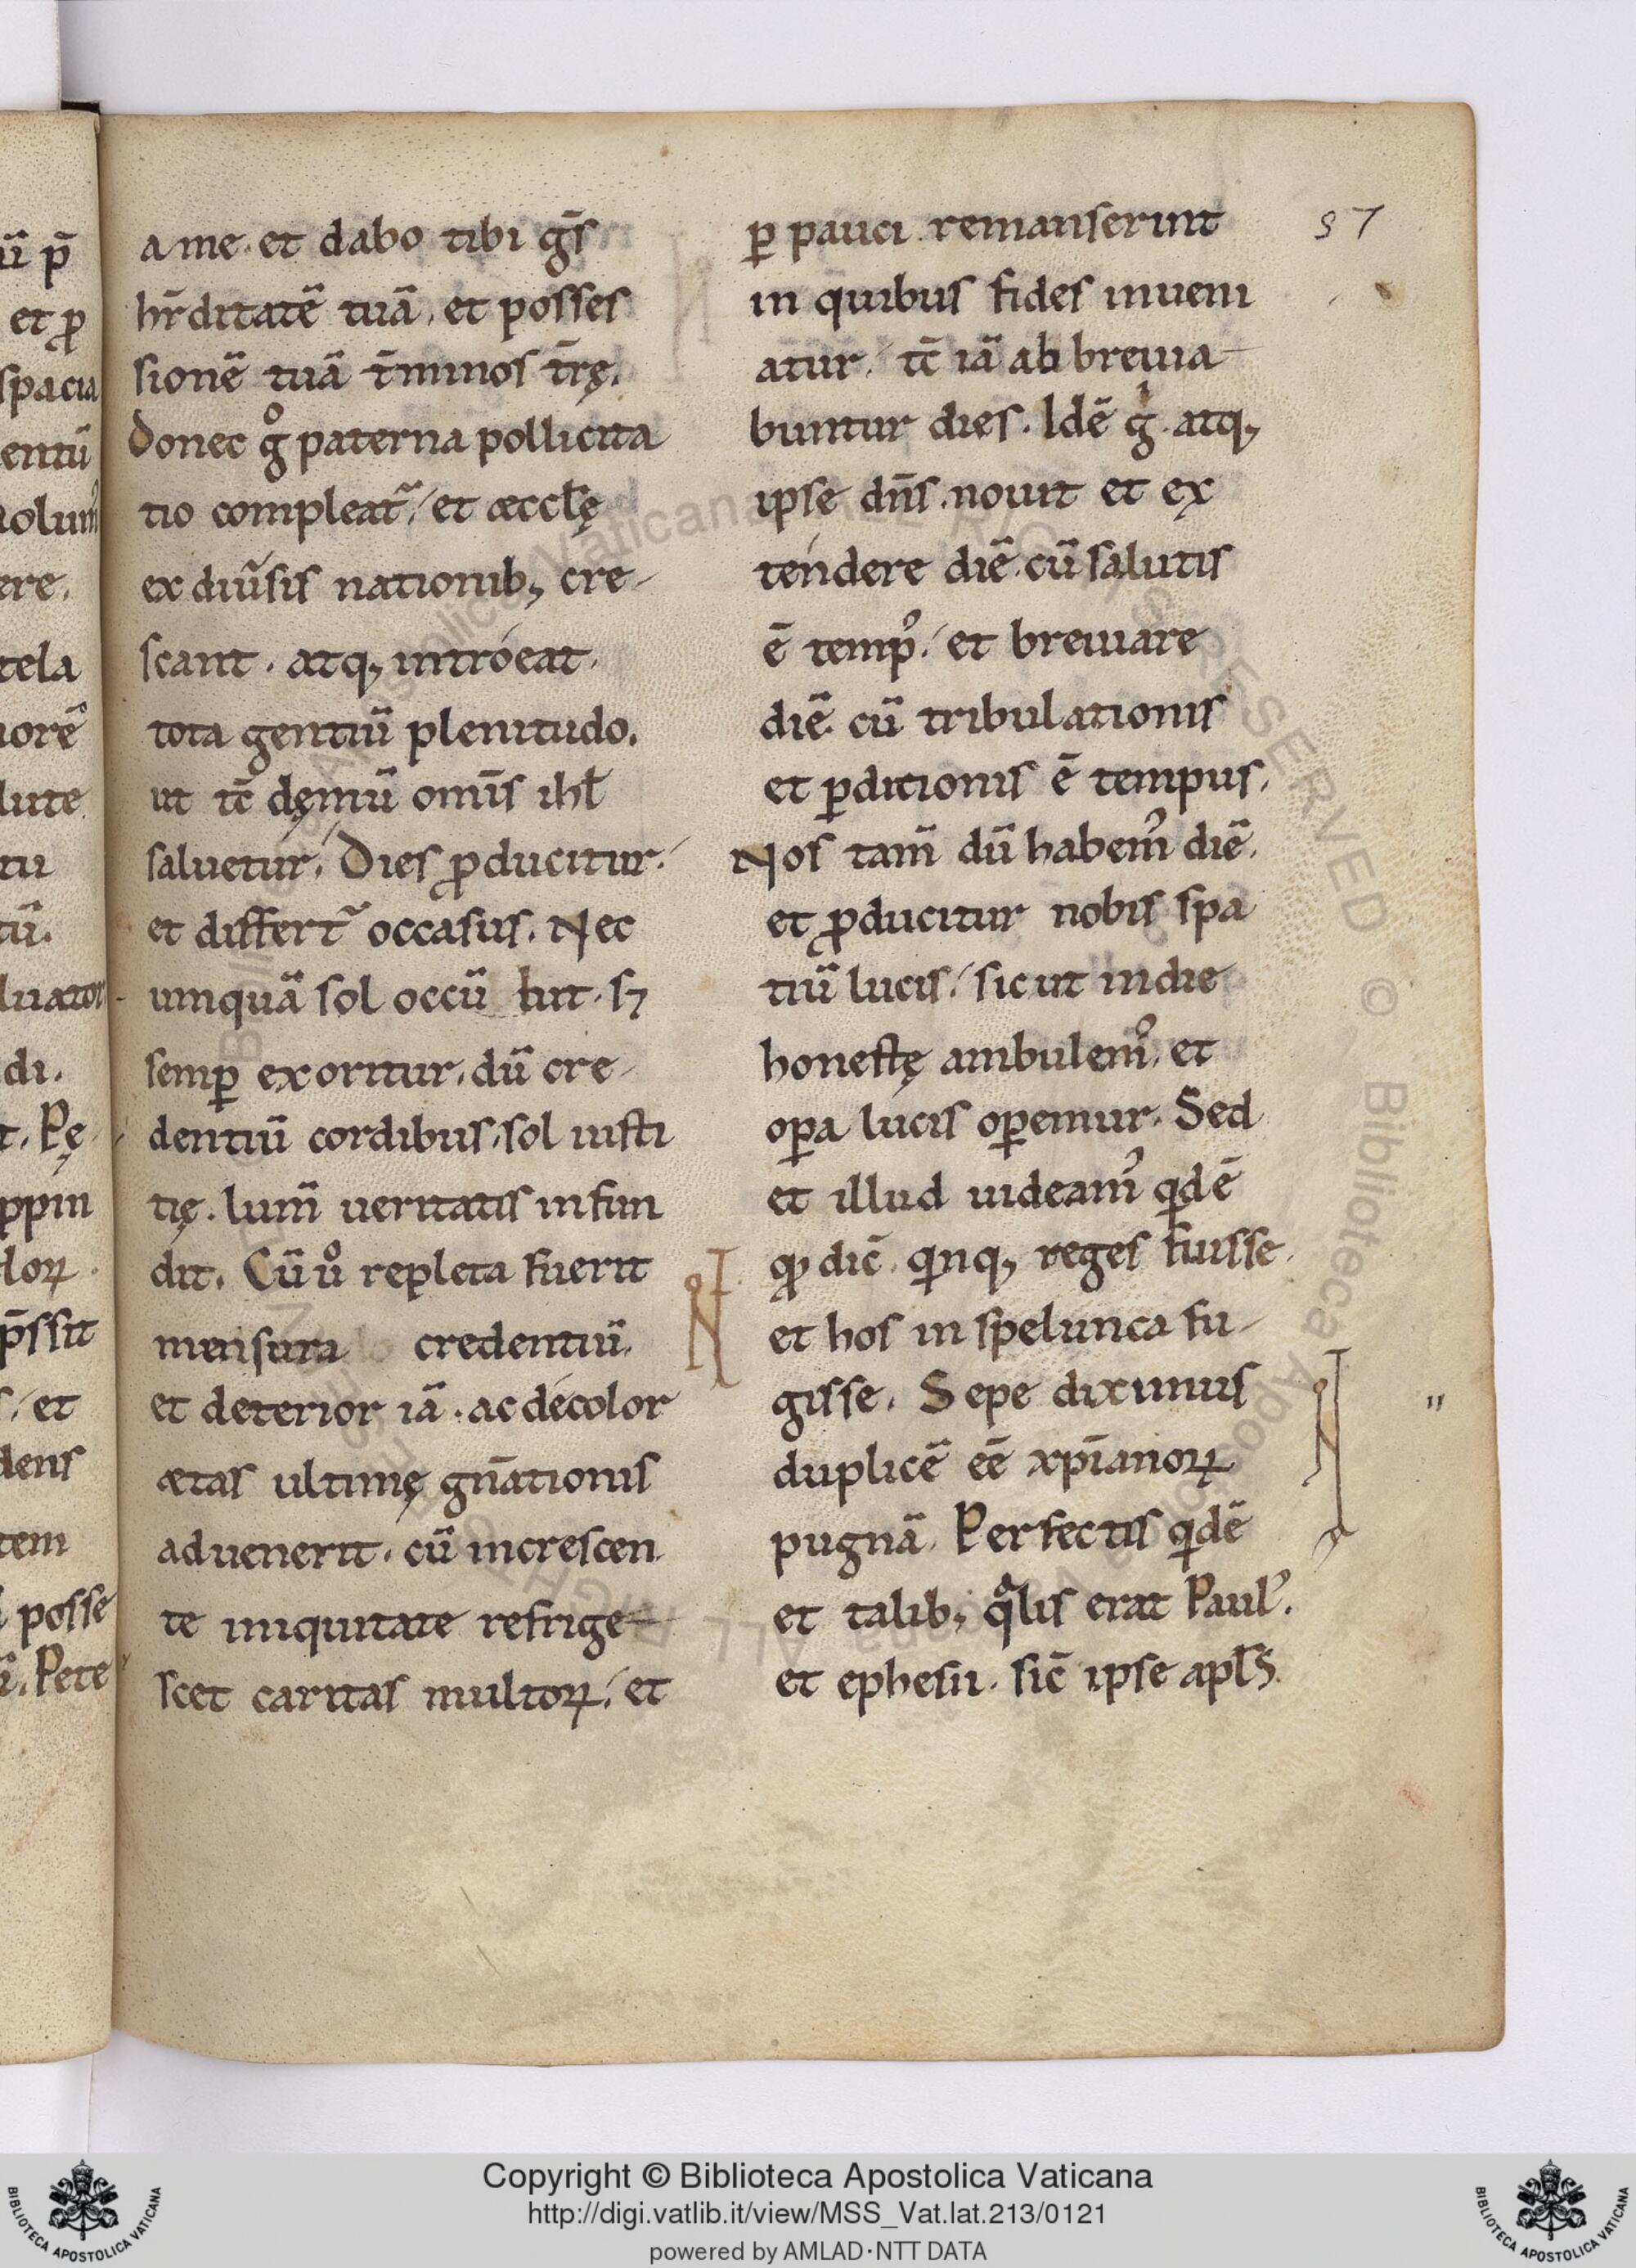 a me. et dabo tibi gs̄
hr̄ditatē tuā, et posses
sionē tuā t̄minos tr̄ę.
Donec gͦ paterna pollicita
tio compleat᷑, et æccl̄ę
ex diūsis nationib; cre-
scant. atq; introeat.
tota gentiū plenitudo.
ut tc̄ dęmū omīs ihl̄
saluetur, Dies ꝓducitur.
et differt᷑ occasus. Nec
umquā sol occū buit. sꝫ
semꝑ exoritur, dū cre-
dentiū cordibus, sol iusti
tię. lum̄ ueritatis infun
dit. Cū uͦ repleta fuerit
mensura credentiū,
et deterior iā. ac decolor
ætas ultimę gn̄ationis
aduenerit. cū increscen
te iniquitate refrige-
scet caritas multoꝝ, et
ꝑ pauci remanserint
in quibus fides inueni
atur, tc̄ iā ab breuia-
buntur dies. Idē gͥ. atq;
ipse dn̄s. nouit et ex
tendere diē. cū salutis
ē temp᾿, et breuiare
diē cū tribulationis
et ꝑditionis ē tempus.
Nos tam̄ dū habem᾿ diē.
et ꝓducitur nobis spa
tiū lucis, sicut in die
honestę ambulem᾿, et
oꝑa lucis oꝑemur. Sed
et illud uideam᾿ qͥdē
qͦ dic̄. qͥnq; reges fuisse.
et hos in spelunca fu-
gisse. Sepe diximus
duplicē ēē xp̄ianoꝝ
pugnā. Perfectis qͥdē
et talib; qͣlis erat Paul᾿.
et ephesii. sic̄ ipse apl̄s
57
Copyright © Biblioteca Apostolica Vaticana
http://digi.vatlib.it/view/MSS_Vat.lat.213/0121
powered by AMLAD·NTT DATA
BIBLIOTECA APOSTOLICA VATICANA
BIBLIOTECA APOSTOLICA VATICANA